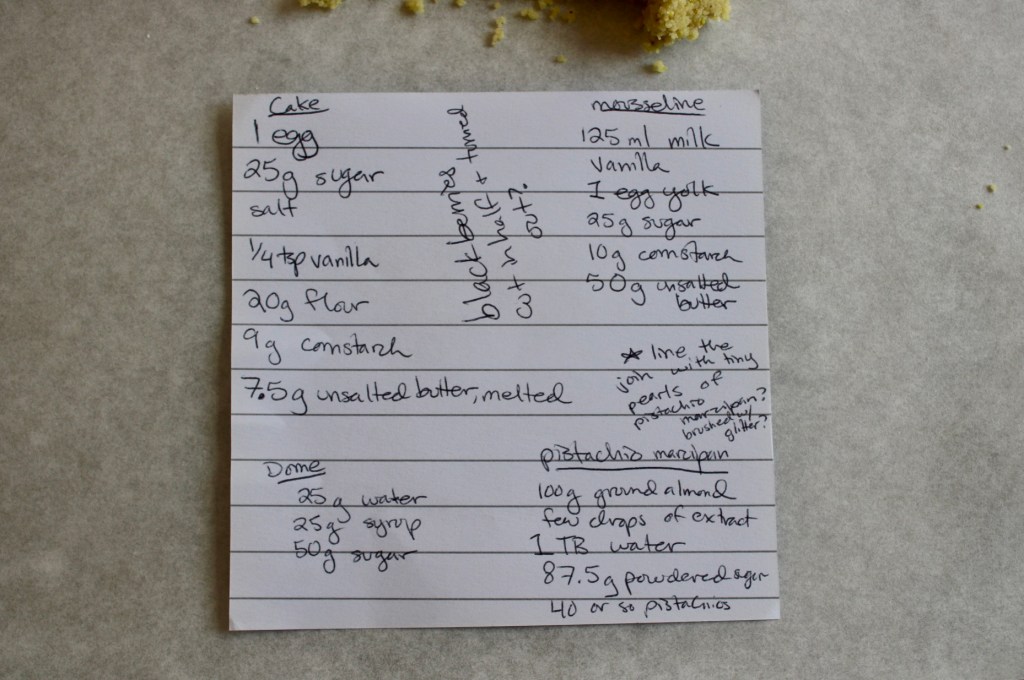 Cake
1 egg
25g sugar
salt
1/4 tsp vanilla
20g flour
9g cornstarch
7.5g unsalted butter, melted
blackberries
cut in half + turned
out?
mousseline
125 ml milk
vanilla
1 egg yolk
25g sugar
10g cornstarch
50g unsalted
butter
★ line the
join with tiny
pearls of
pistachio
marzipan?
brushed w/
glitter?
Dome
25g water
25g syrup
50g sugar
pistachio marzipan
100g ground almond
few drops of extract
1 TB water
87.5g powdered sugar
40 or so pistachios